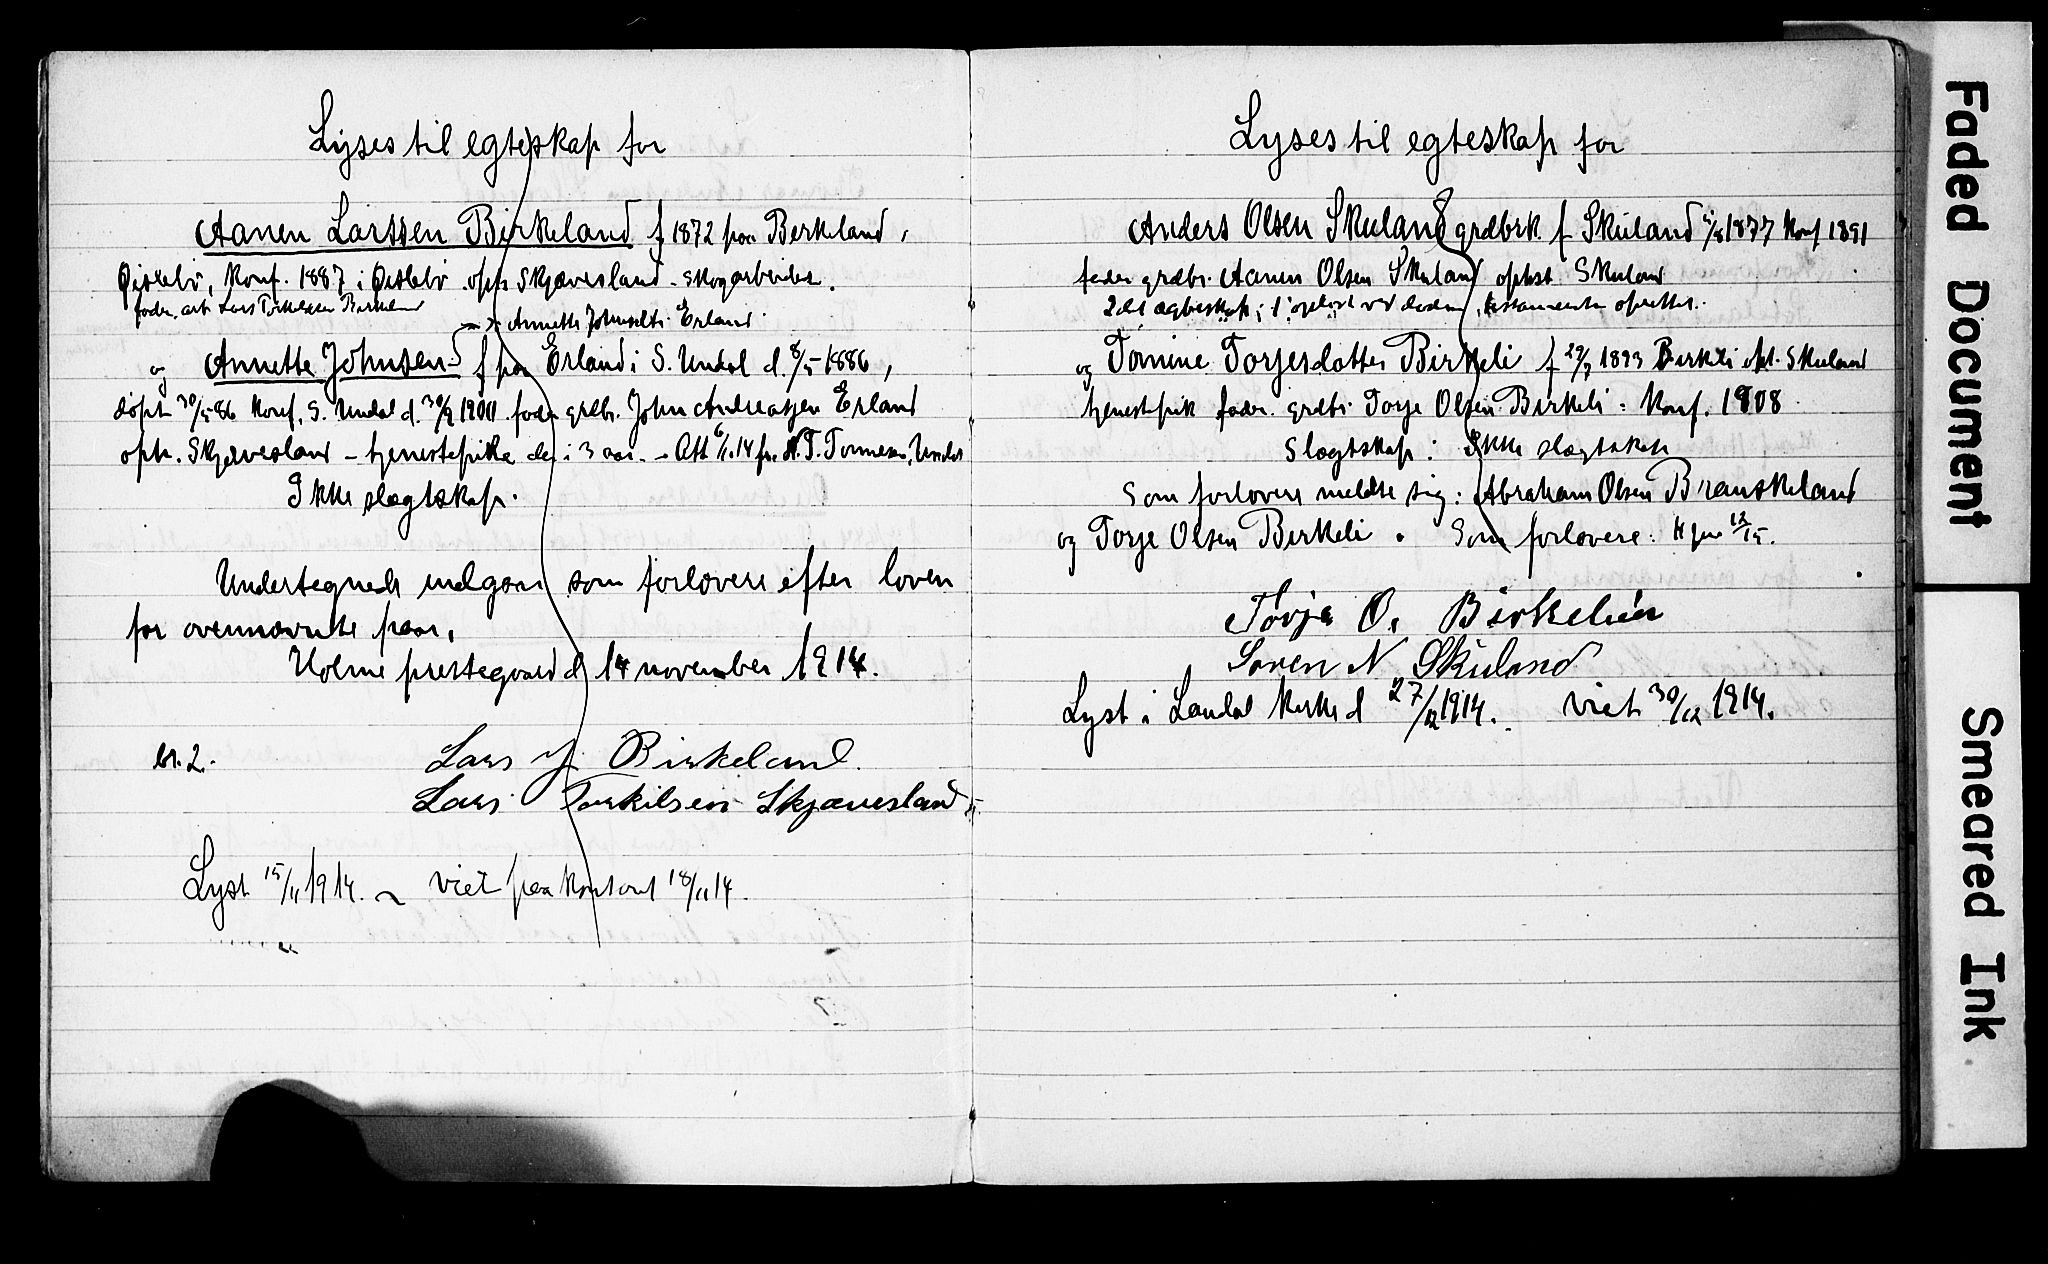 Lyses til egteskap for
Aanen Larssen Birkeland f 1872 paa Birkeland,
Øislebø, konf. 1887 i Øislebø opH Skjævesland - skogarbeider.
fader, arb. Lars Torkelsen Birkeland
Annette Johnsdtr. Erland
og Annette Johnsen f paa Erland i S. Undal d. 8/5 1886,
døpt 30/5 86 konf. S. Undal d. 30/9 1900 fader grdbr. John Andreassen Erland
oph. Skjævesland - tjenestepike der i 3 aar. - Att 6/11 14 fra N. T. Tønnesen, Undal
Ikke slægtskap.
Undertegnede indgaar som forlovere efter loven
for ovennævnte paar,
Holme prestegaard d 14 november 1914.
bl. 2. Lars J. Birkeland.
Lars Torkilsen Skjævesland
Lyst 15/11 1914. ~ viet paa kontoret 18/11 14.
Lyses til egteskap for
Anders Olsen Skuland grdbrk. f Skuland 1877 konf 1891
fader grdbr. Aanen Olsen Skuland opHst Skuland
2det ægteskap; 1. opløst ved døden, testamente oprettet.
og Tomine Torjesdatter Birkeli f 29/3 1893 Birkeli opH. Skuland
tjenestepik fader. grdbr. Torje Olsen Birkeli: konf. 1908
Slægtskap: Ikke slægtskap
Som forlovere meldte sig: Abraham Olsen Brauskeland
og Torje Olsen Birkeli. Som forlovere: 12/15.
Torje O. Birkelien
Søren N Skuland
Lyst i Laudal kirke d 27/12 1914. viet 30/12 1914.
Faded Document
Smeared Ink